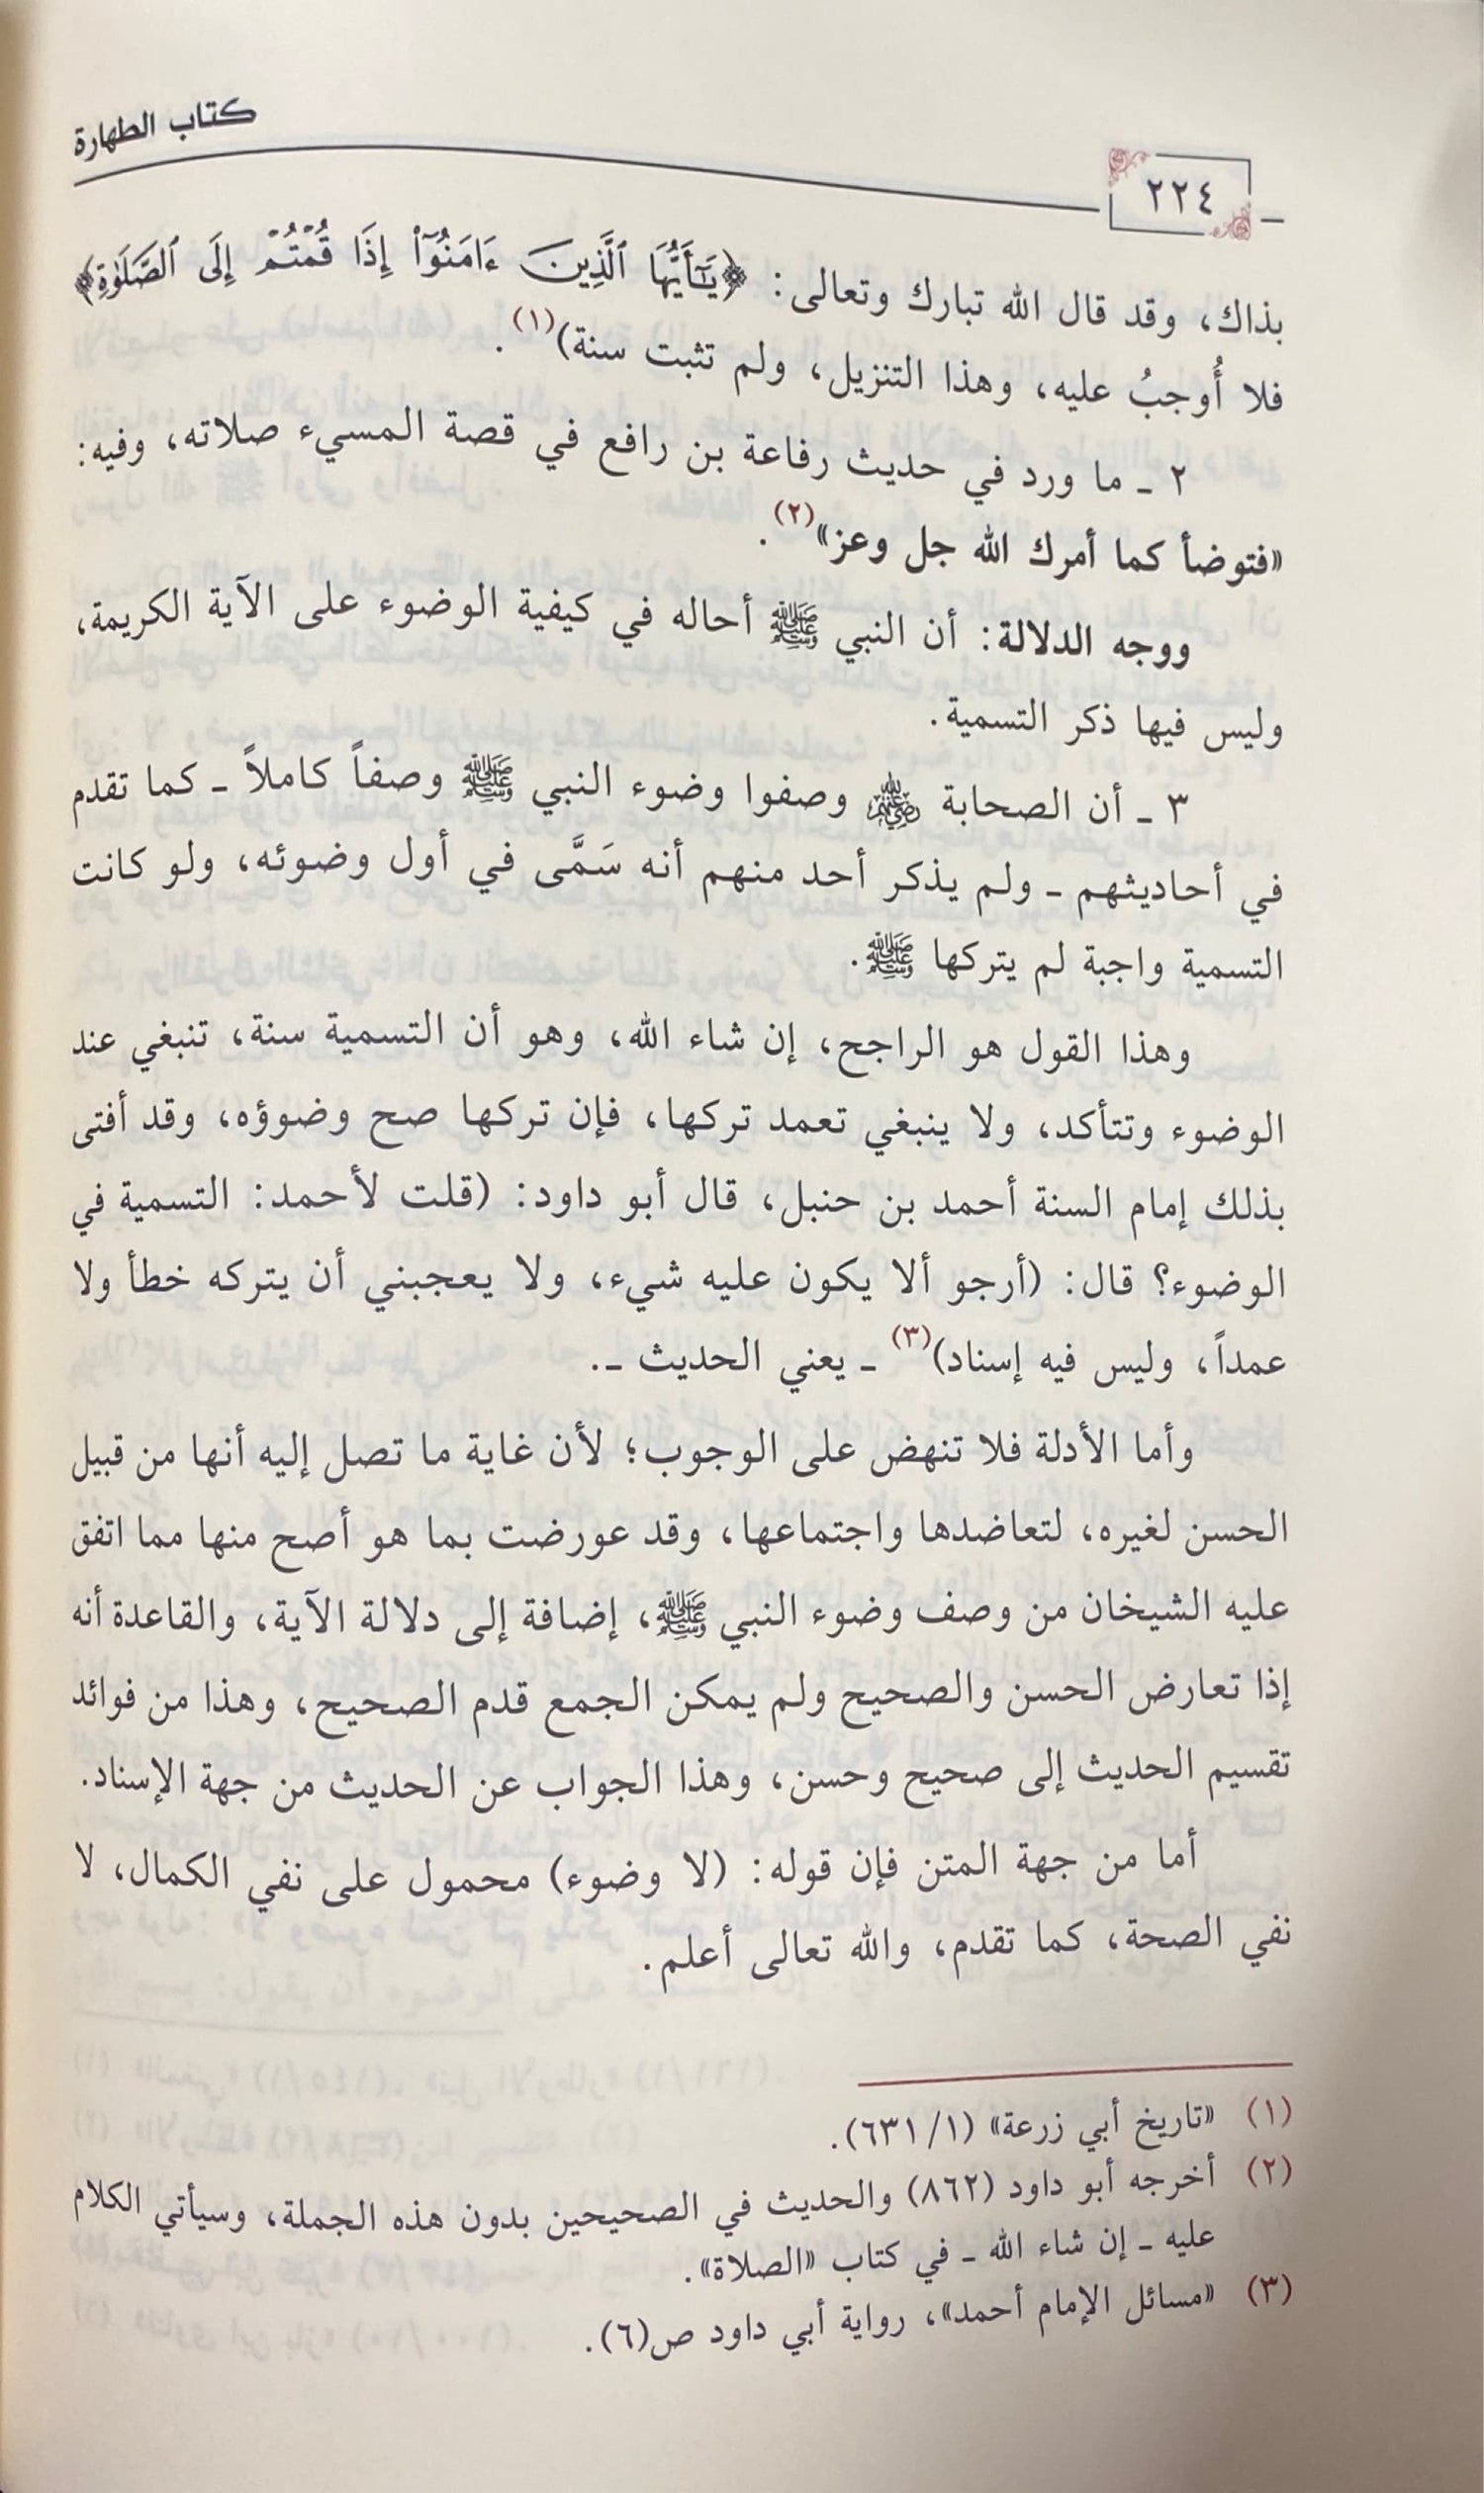 كتاب الطهارة
٢٢٤
بذاك، وقد قال الله تبارك وتعالى: ﴿يَٰٓأَيُّهَا ٱلَّذِينَ ءَامَنُوٓاْ إِذَا قُمۡتُمۡ إِلَى ٱلصَّلَوٰةِ﴾
فلا أُوجبُ عليه، وهذا التنزيل، ولم تثبت سنة)(١).
٢ ـ ما ورد في حديث رفاعة بن رافع في قصة المسيء صلاته، وفيه:
«فتوضأ كما أمرك الله جل وعز»(٢).
ووجه الدلالة: أن النبي ﷺ أحاله في كيفية الوضوء على الآية الكريمة،
وليس فيها ذكر التسمية.
٣ ـ أن الصحابة رضي الله عنهم وصفوا وضوء النبي ﷺ وصفاً كاملاً ـ كما تقدم
في أحاديثهم ـ ولم يذكر أحد منهم أنه سَمَّى في أول وضوئه، ولو كانت
التسمية واجبة لم يتركها ﷺ.
وهذا القول هو الراجح، إن شاء الله، وهو أن التسمية سنة، تنبغي عند
الوضوء وتتأكد، ولا ينبغي تعمد تركها، فإن تركها صح وضوؤه، وقد أفتى
بذلك إمام السنة أحمد بن حنبل، قال أبو داود: (قلت لأحمد: التسمية في
الوضوء؟ قال: (أرجو ألا يكون عليه شيء، ولا يعجبني أن يتركه خطأ ولا
عمداً، وليس فيه إسناد)(٣) ـ يعني الحديث ـ.
وأما الأدلة فلا تنهض على الوجوب؛ لأن غاية ما تصل إليه أنها من قبيل
الحسن لغيره، لتعاضدها واجتماعها، وقد عورضت بما هو أصح منها مما اتفق
عليه الشيخان من وصف وضوء النبي ﷺ، إضافة إلى دلالة الآية، والقاعدة أنه
إذا تعارض الحسن والصحيح ولم يمكن الجمع قدم الصحيح، وهذا من فوائد
تقسيم الحديث إلى صحيح وحسن، وهذا الجواب عن الحديث من جهة الإسناد.
أما من جهة المتن فإن قوله: (لا وضوء) محمول على نفي الكمال، لا
نفي الصحة، كما تقدم، والله تعالى أعلم.
(١) «تاريخ أبي زرعة» (١/ ٦٣١).
(٢) أخرجه أبو داود (٨٦٢) والحديث في الصحيحين بدون هذه الجملة، وسيأتي الكلام
عليه ـ إن شاء الله ـ في كتاب «الصلاة».
(٣) «مسائل الإمام أحمد»، رواية أبي داود ص(٦).